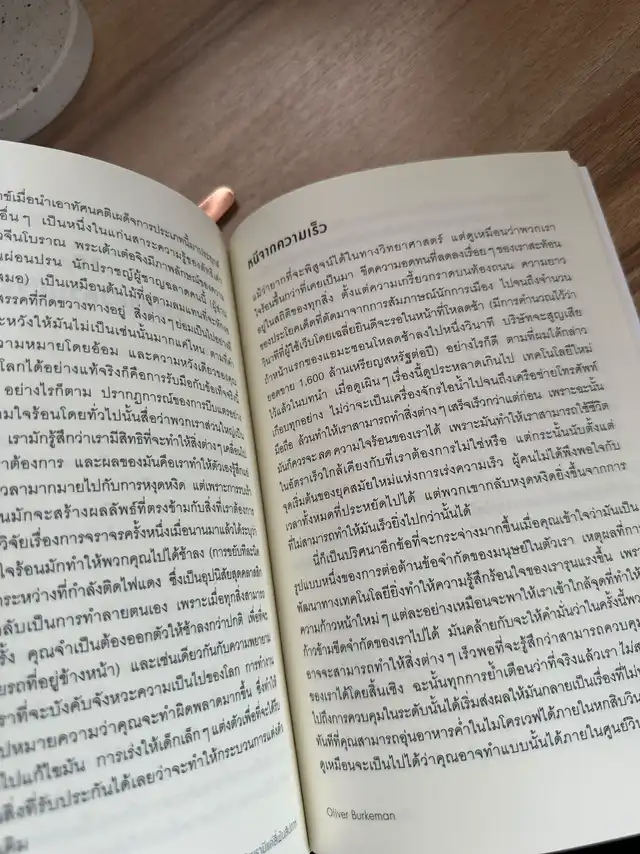 ข์เมื่อนำเอาทัศนคติเผด็จการประเภทนี้มา
อื่นๆ เป็นหนึ่งในแก่นสาระความรู้ของลัทธิเต๋า
วจีนโบราณ พระเต้าเต๋อจิงมีภาพลักษณ์ของ
ผ่อนปรน นักปราชญ์ผู้ชาญฉลาดคนนี้
สมอ) เป็นเหมือนต้นไม้ที่ลู่ตามลมแทนที่จะหัก
รรคที่กีดขวางทางอยู่ สิ่งต่างๆ ย่อมเป็นไปอย่างที่
ะหวังให้มันไม่เป็นเช่นนั้นมากแค่ไหน
ความหมายโดยอ้อม และความหวังเดียวของคุณ
โลกได้อย่างแท้จริงก็คือการรับมือกับข้อเท็จจริง
อย่างไรก็ตาม ปรากฏการณ์ของการบีบแตรอย่าง
มใจร้อนโดยทั่วไปนั้นสื่อว่าพวกเราส่วนใหญ่เป็น
เรามักรู้สึกว่าเรามีสิทธิที่จะทำให้สิ่งต่างๆ เคลื่อนไป
าต้องการ และผลของมันคือเราทำให้ตัวเองรู้สึกแย่
วลามากมายไปกับการหงุดหงิด แต่เพราะการรบเร้า
นมักจะสร้างผลลัพธ์ที่ตรงข้ามกับสิ่งที่เราต้องการ
วิจัยเรื่องการจราจรครั้งหนึ่งเมื่อนานมาแล้วได้ระบุว่า
ใจร้อนมักทำให้พวกคุณไปได้ช้าลง (การขยับทีละนิด
ระหว่างที่กำลังติดไฟแดง ซึ่งเป็นอุปนิสัยสุดคลาสสิก
ลับเป็นการทำลายตนเอง เพราะเมื่อทุกสิ่งสามารถ
รั้ง คุณจำเป็นต้องออกตัวให้ช้าลงกว่าปกติ เพื่อที่จะ
ยรถที่อยู่ข้างหน้า) และเช่นเดียวกันกับความพยายาม
ราที่จะบังคับจังหวะความเป็นไปของโลก การทำงาน
ปหมายความว่าคุณจะทำผิดพลาดมากขึ้น ซึ่งทำให้
ไปแก้ไขมัน การเร่งให้เด็กเล็กๆ แต่งตัวเพื่อที่จะได้
นสิ่งที่รับประกันได้เลยว่าจะทำให้กระบวนการแต่งตัว
ดิม
หนีจากความเร็ว
แม้ว่ายากที่จะพิสูจน์ได้ในทางวิทยาศาสตร์ แต่ดูเหมือนว่าพวกเรา
ใจร้อนขึ้นกว่าที่เคยเป็นมา ขีดความอดทนที่ลดลงเรื่อยๆ ของเราสะท้อน
อยู่ในสถิติของทุกสิ่ง ตั้งแต่ความเกรี้ยวกราดบนท้องถนน ความยาว
ของประโยคเด็ดที่ตัดมาจากการสัมภาษณ์นักการเมือง ไปจนถึงจำนวน
วินาทีที่ผู้ใช้เว็บโดยเฉลี่ยยินดีจะรอในหน้าที่โหลดช้า (มีการคำนวณไว้ว่า
ถ้าหน้าแรกของแอมะซอนโหลดช้าลงไปหนึ่งวินาที บริษัทจะสูญเสีย
ยอดขาย 1,600 ล้านเหรียญสหรัฐต่อปี) อย่างไรก็ดี ตามที่ผมได้กล่าว
ไว้แล้วในบทนำ เมื่อดูเผินๆ เรื่องนี้ดูประหลาดเกินไป เทคโนโลยีใหม่
เกือบทุกอย่าง ไม่ว่าจะเป็นเครื่องจักรไอน้ำไปจนถึงเครือข่ายโทรศัพท์
มือถือ ล้วนทำให้เราสามารถทำสิ่งต่างๆ เสร็จเร็วกว่าแต่ก่อน เพราะฉะนั้น
มันก็ควรจะ ลด ความใจร้อนของเราได้ เพราะมันทำให้เราสามารถใช้ชีวิต
ในอัตราเร็วใกล้เคียงกับที่เราต้องการไม่ใช่หรือ แต่กระนั้นนับตั้งแต่
จุดเริ่มต้นของยุคสมัยใหม่แห่งการเร่งความเร็ว ผู้คนไม่ได้พึงพอใจกับ
เวลาทั้งหมดที่ประหยัดไปได้ แต่พวกเขากลับหงุดหงิดยิ่งขึ้นจากการ
ที่ไม่สามารถทำให้มันเร็วยิ่งไปกว่านั้นได้
นี่ก็เป็นปริศนาอีกข้อที่จะกระจ่างมากขึ้นเมื่อคุณเข้าใจว่ามันเป็น
รูปแบบหนึ่งของการต่อต้านข้อจำกัดของมนุษย์ในตัวเรา เหตุผลที่การ
พัฒนาทางเทคโนโลยียิ่งทำให้ความรู้สึกร้อนใจของเรารุนแรงขึ้น
ความก้าวหน้าใหม่ๆ แต่ละอย่างเหมือนจะพาให้เราเข้าใกล้จุดที่ทำให้
ก้าวข้ามขีดจำกัดของเราไปได้ มันคล้ายกับจะให้คำมั่นว่าในครั้งนี้
อาจจะสามารถทำให้สิ่งต่างๆ เร็วพอที่จะรู้สึกว่าสามารถควบคุม
ของเราได้โดยสิ้นเชิง ฉะนั้นทุกการย้ำเตือนว่าที่จริงแล้วเรา
ไปถึงการควบคุมในระดับนั้นได้เริ่มส่งผลให้มันกลายเป็นเรื่องที่
ทันทีที่คุณสามารถอุ่นอาหารค่ำในไมโครเวฟได้ภายในหกสิบ
ดูเหมือนจะเป็นไปได้ว่าคุณอาจทำแบบนั้นได้ภายในศูนย์
Oliver Burkeman